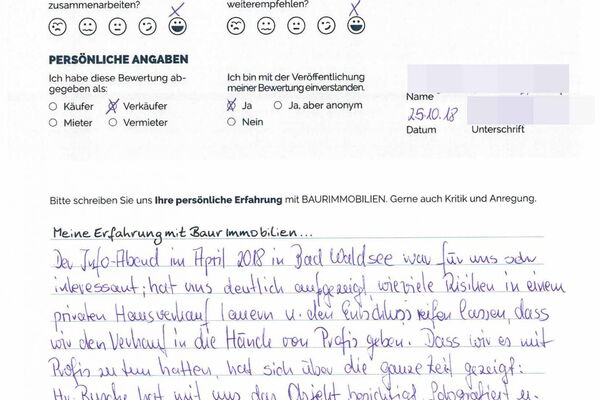 zusammenarbeiten?
weiterempfehlen?
PERSÖNLICHE ANGABEN
Ich habe diese Bewertung ab-
gegeben als:
Käufer
Verkäufer
Mieter
Vermieter
Ich bin mit der Veröffentlichung
meiner Bewertung einverstanden.
Ja
Ja, aber anonym
Nein
Name
25.10.18
Datum
Unterschrift
Bitte schreiben Sie uns Ihre persönliche Erfahrung mit BAURIMMOBILIEN. Gerne auch Kritik und Anregung.
Meine Erfahrung mit Baur Immobilien...
Der Info-Abend im April 2018 in Bad Waldsee war für uns sehr
interessant; hat uns deutlich aufgezeigt, wieviele Risiken in einem
privaten Hausverkauf lauern u. den Entschluss reifen lassen, dass
wir den Verkauf in die Hände von Profis geben. Dass wir es mit
Profis zu tun hatten, hat sich über die ganze Zeit gezeigt:
hat mit uns das Objekt besichtigt, fotografiert u.